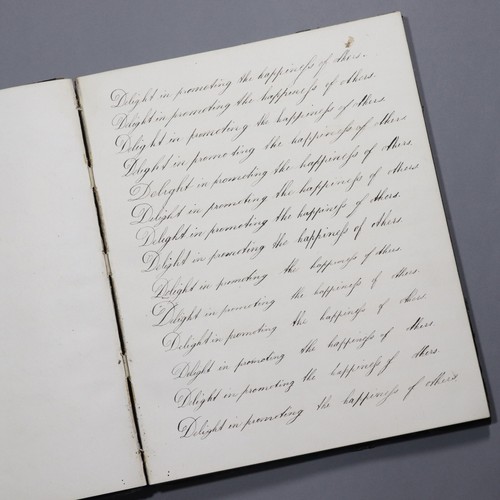 Delight in promoting the happiness of others.
Delight in promoting the happiness of others.
Delight in promoting the happiness of others.
Delight in promoting the happiness of others
Delight in promoting the happiness of others.
Delight in promoting the happiness of others
Delight in promoting the happiness of others.
Delight in promoting the happiness of others.
Delight in promoting the happiness of others.
Delight in promoting the happiness of others
Delight in promoting the happiness of others.
Delight in promoting the happiness of others
Delight in promoting the happiness of others.
Delight in promoting the happiness of others.